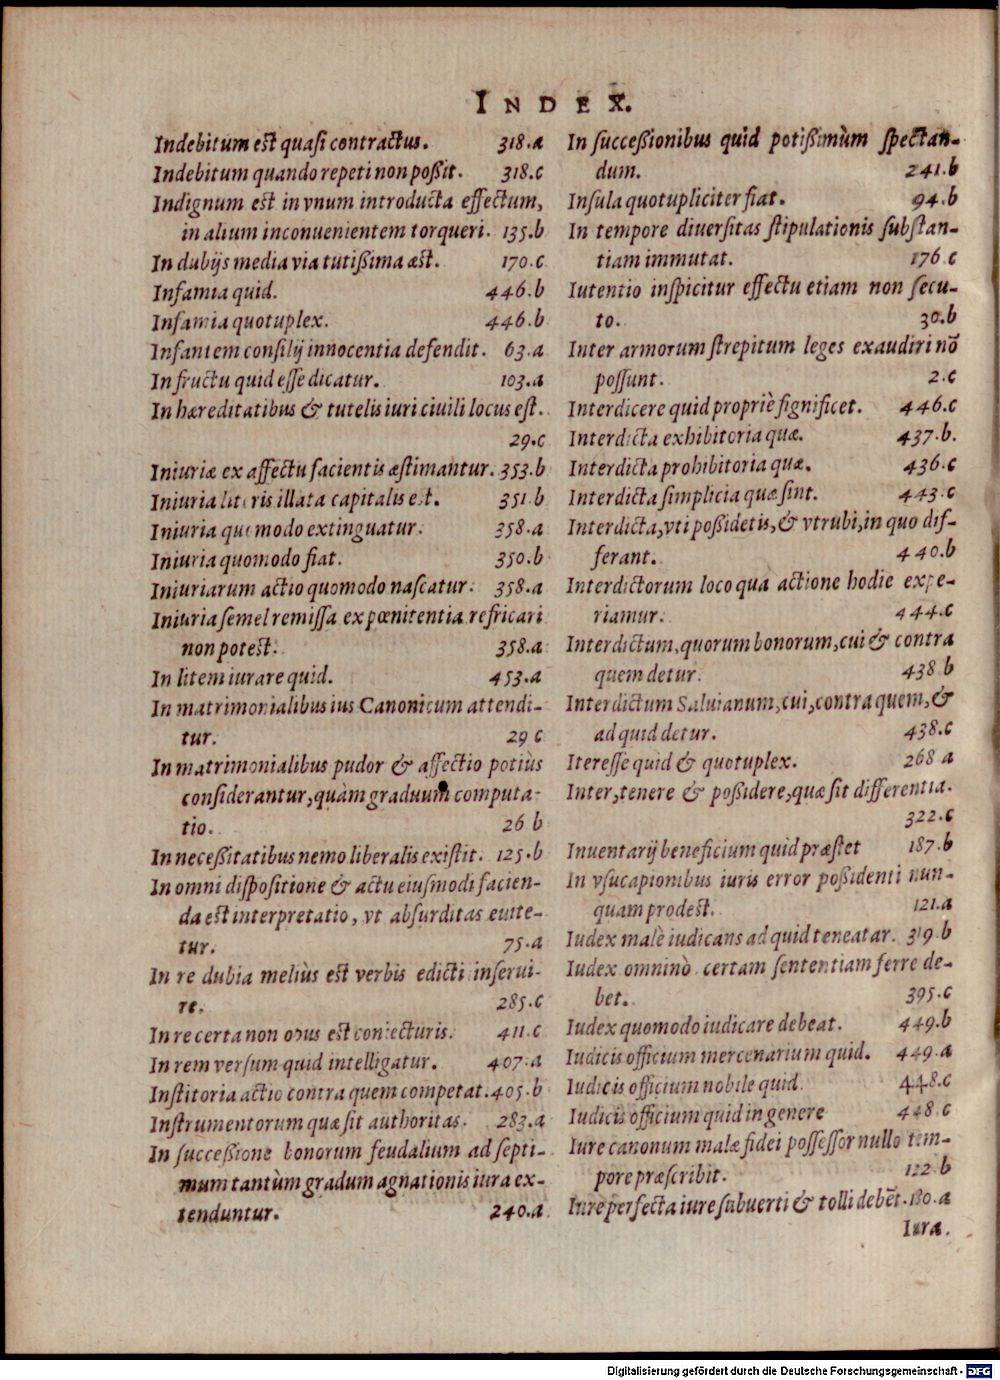 INDEX.
Indebitum est quasi contractus. 318.a
Indebitum quando repeti non poßit. 318.c
Indignum est in vnum introducta effectum,
in alium inconuenientem torqueri. 135.b
In dubijs media via tutißima æst. 170.c
Infamia quid. 446.b
Infamia quotuplex. 446.b
Infantem consilij innocentia defendit. 63.a
In fructu quid esse dicatur. 103.a
In hæreditatibus & tutelis iuri ciuili locus est.
29.c
Iniuriæ ex affectu facientis æstimantur. 353.b
Iniuria literis illata capitalis est. 351.b
Iniuria quomodo extinguatur. 358.a
Iniuria quomodo fiat. 350.b
Iniuriarum actio quomodo nascatur. 358.a
Iniuria semel remissa ex pœnitentia refricari
non potest. 358.a
In litem iurare quid. 453.a
In matrimonialibus ius Canonicum attendi-
tur. 29 c
In matrimonialibus pudor & affectio potiùs
considerantur, quàm graduum computa-
tio. 26 b
In neceßitatibus nemo liberalis existit. 125.b
In omni dispositione & actu eiusmodi facien-
da est interpretatio, vt absurditas euite-
tur. 75.a
In re dubia meliùs est verbis edicti inserui-
re. 285.c
In re certa non opus est coniecturis. 411.c
In rem versum quid intelligatur. 407.a
Institoria actio contra quem competat. 405.b
Instrumentorum quæ sit authoritas. 283.a
In succeßione bonorum feudalium ad septi-
mum tantùm gradum agnationis iura ex-
tenduntur. 240.a
In succeßionibus quid potißimùm spectan-
dum. 241.b
Insula quotupliciter fiat. 94.b
In tempore diuersitas stipulationis substan-
tiam immutat. 176 c
Iutentio inspicitur effectu etiam non secu-
to. 30.b
Inter armorum strepitum leges exaudiri nō
possunt. 2.c
Interdicere quid propriè significet. 446.c
Interdicta exhibitoria quæ. 437.b.
Interdicta prohibitoria quæ. 436.c
Interdicta simplicia quæ sint. 443.c
Interdicta, vti poßidetis, & vtrubi, in quo dif-
ferant. 440.b
Interdictorum loco qua actione hodie expe-
riamur. 444.c
Interdictum, quorum bonorum, cui & contra
quem detur. 438 b
Interdictum Saluianum, cui, contra quem, &
ad quid detur. 438.c
Iteresse quid & quotuplex. 268 a
Inter, tenere & poßidere, quæ sit differentia.
322.c
Inuentarij beneficium quid præstet 187.b
In vsucapionibus iuris error poßidenti nun-
quam prodest. 121.a
Iudex malè iudicans ad quid teneatar. 319 b
Iudex omninò certam sententiam ferre de-
bet. 395.c
Iudex quomodo iudicare debeat. 449.b
Iudicis officium mercenarium quid. 449.a
Iudicis officium nobile quid. 448.c
Iudicis officium quid in genere 448.c
Iure canonum malæ fidei possessor nullo tem-
pore præscribit. 122 b
Iure perfecta iure subuerti & tolli debēt. 180.a
Iura.
Digitalisierung gefördert durch die Deutsche Forschungsgemeinschaft - DFG